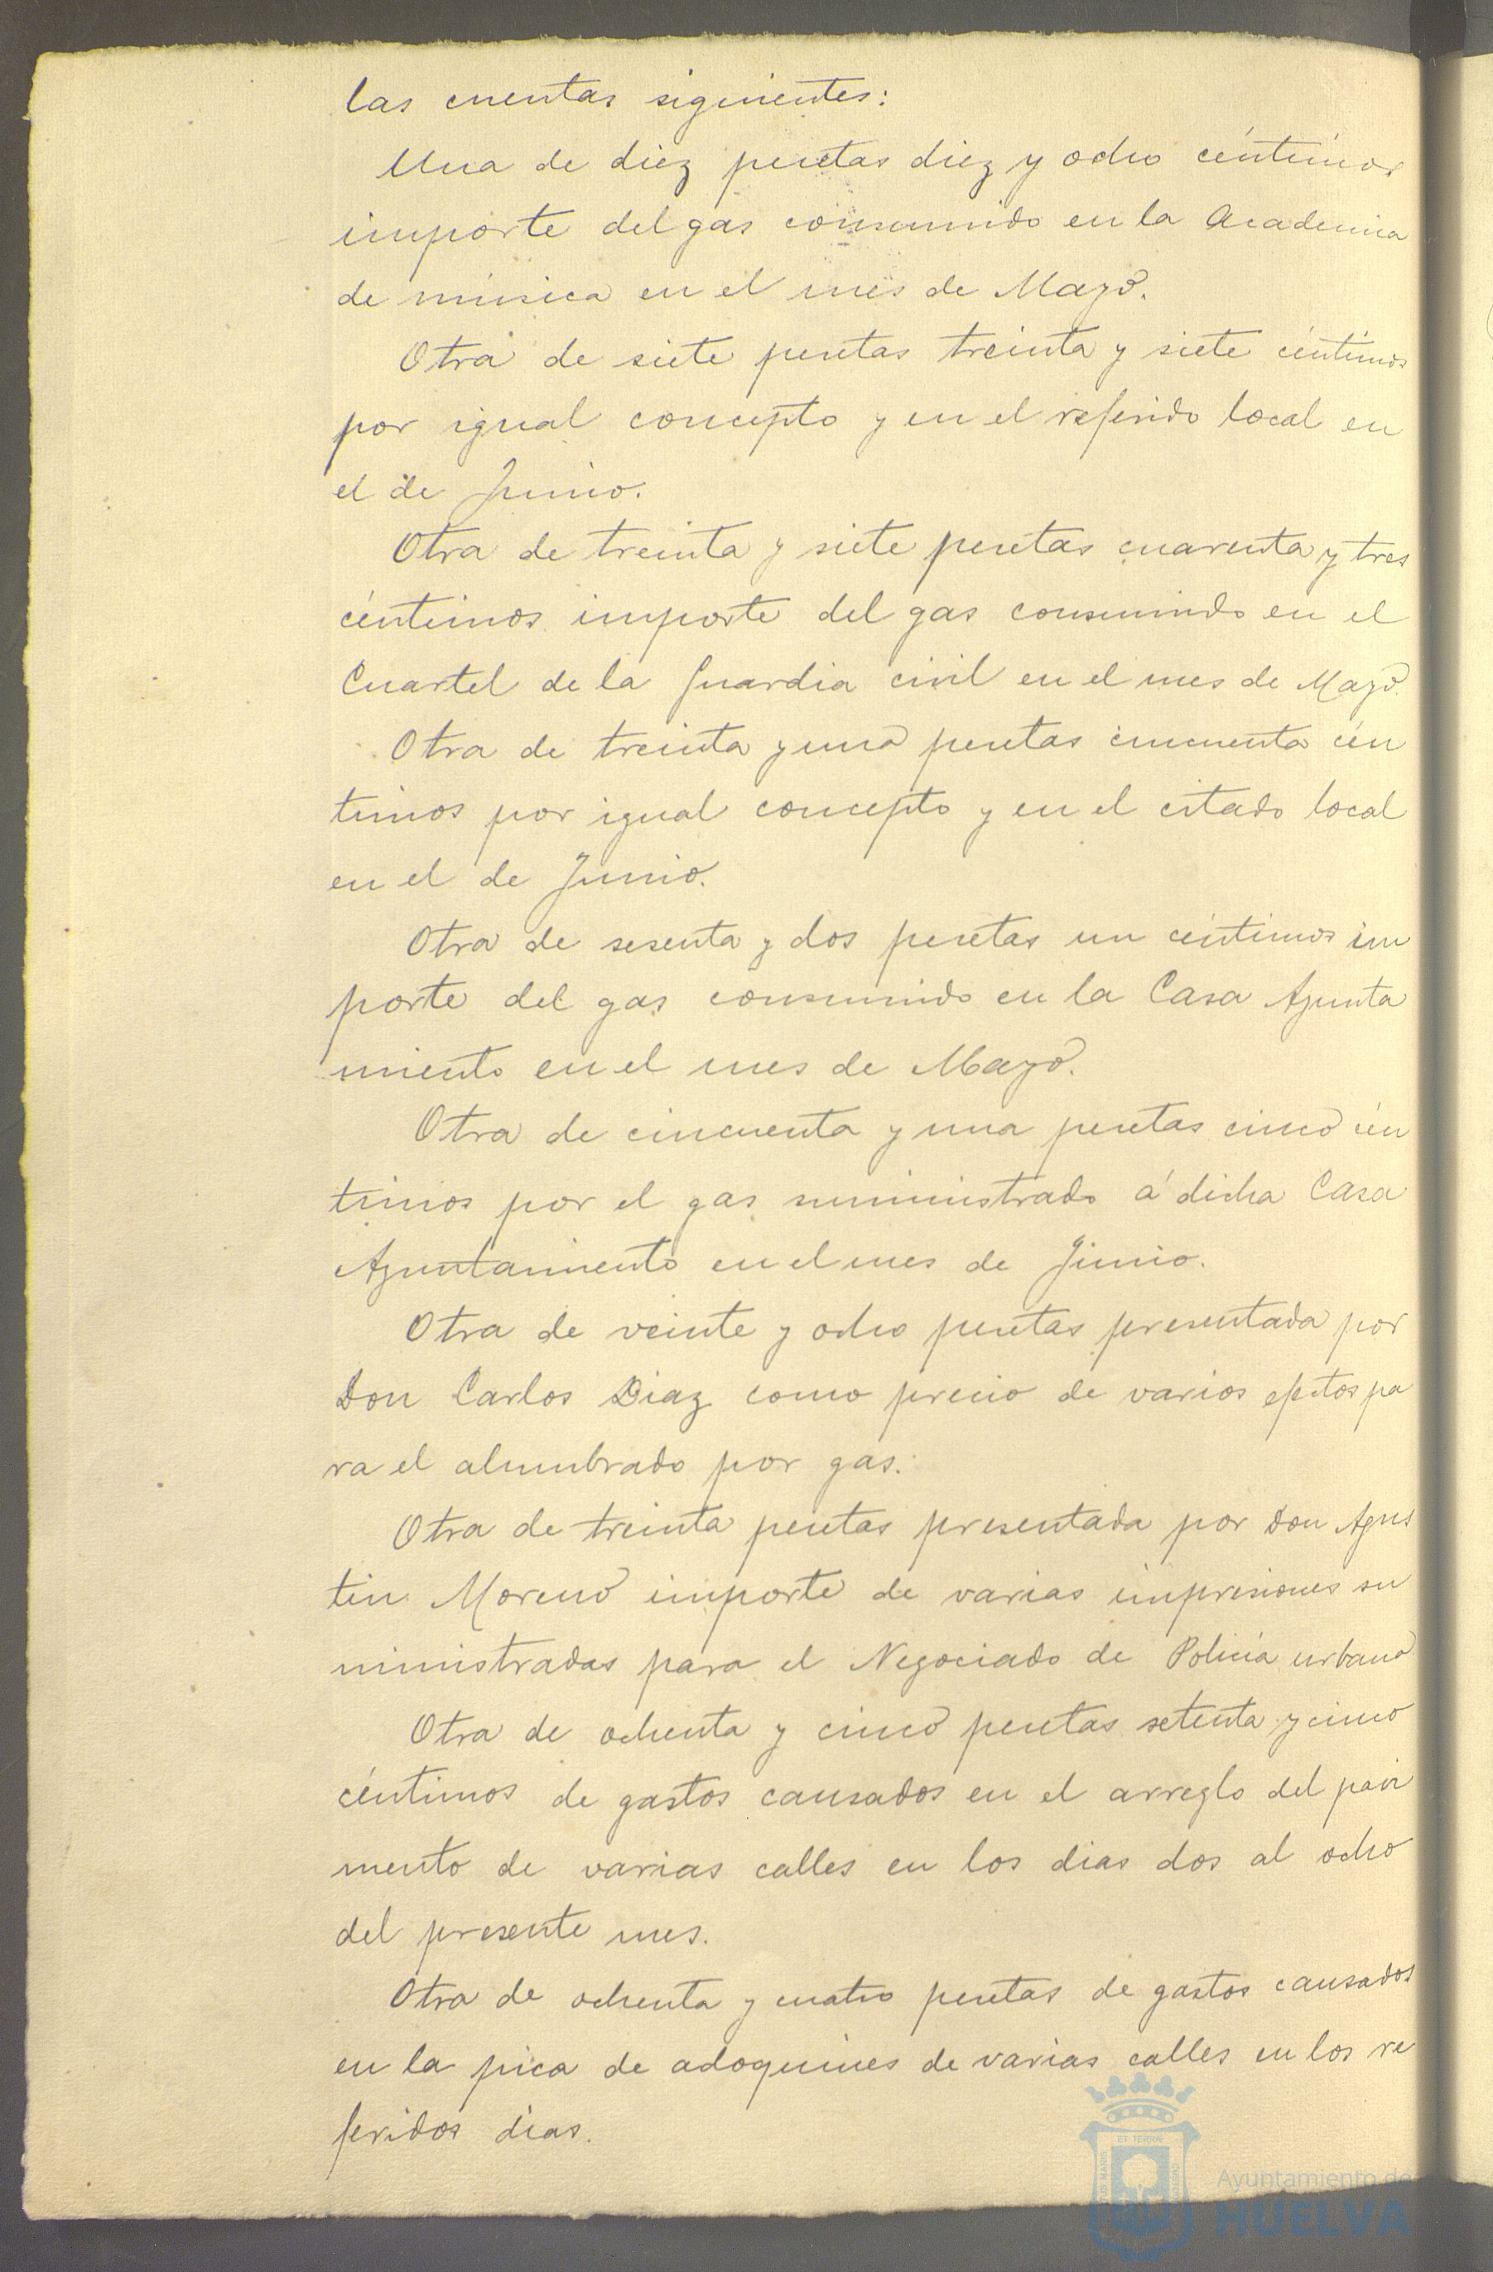 las cuentas siguientes:
Una de diez pesetas diez y ocho céntimos
importe del gas consumido en la Academia
de música en el mes de Mayo.
Otra de siete pesetas treinta y siete céntimos
por igual concepto y en el referido local en
el de Junio.
Otra de treinta y siete pesetas cuarenta y tres
céntimos importe del gas consumido en el
Cuartel de la Guardia civil en el mes de Mayo.
Otra de treinta y una pesetas cincuenta cén
timos por igual concepto y en el citado local
en el de Junio.
Otra de sesenta y dos pesetas un céntimos im
porte del gas consumido en la Casa Ayunta
miento en el mes de Mayo.
Otra de cincuenta y una pesetas cinco cén
timos por el gas suministrado á dicha Casa
Ayuntamiento en el mes de Junio.
Otra de veinte y ocho pesetas presentada por
Don Carlos Diaz como precio de varios efectos pa
ra el alumbrado por gas.
Otra de treinta pesetas presentada por Don Agus
tin Moreno importe de varias impresiones su
ministradas para el Negociado de Policía urbana
Otra de ochenta y cinco pesetas setenta y cinco
céntimos de gastos causados en el arreglo del pavi
mento de varias calles en los dias dos al ocho
del presente mes.
Otra de ochenta y cuatro pesetas de gastos causados
en la pica de adoquines de varias calles en los re
feridos dias.
Ayuntamiento de
HUELVA